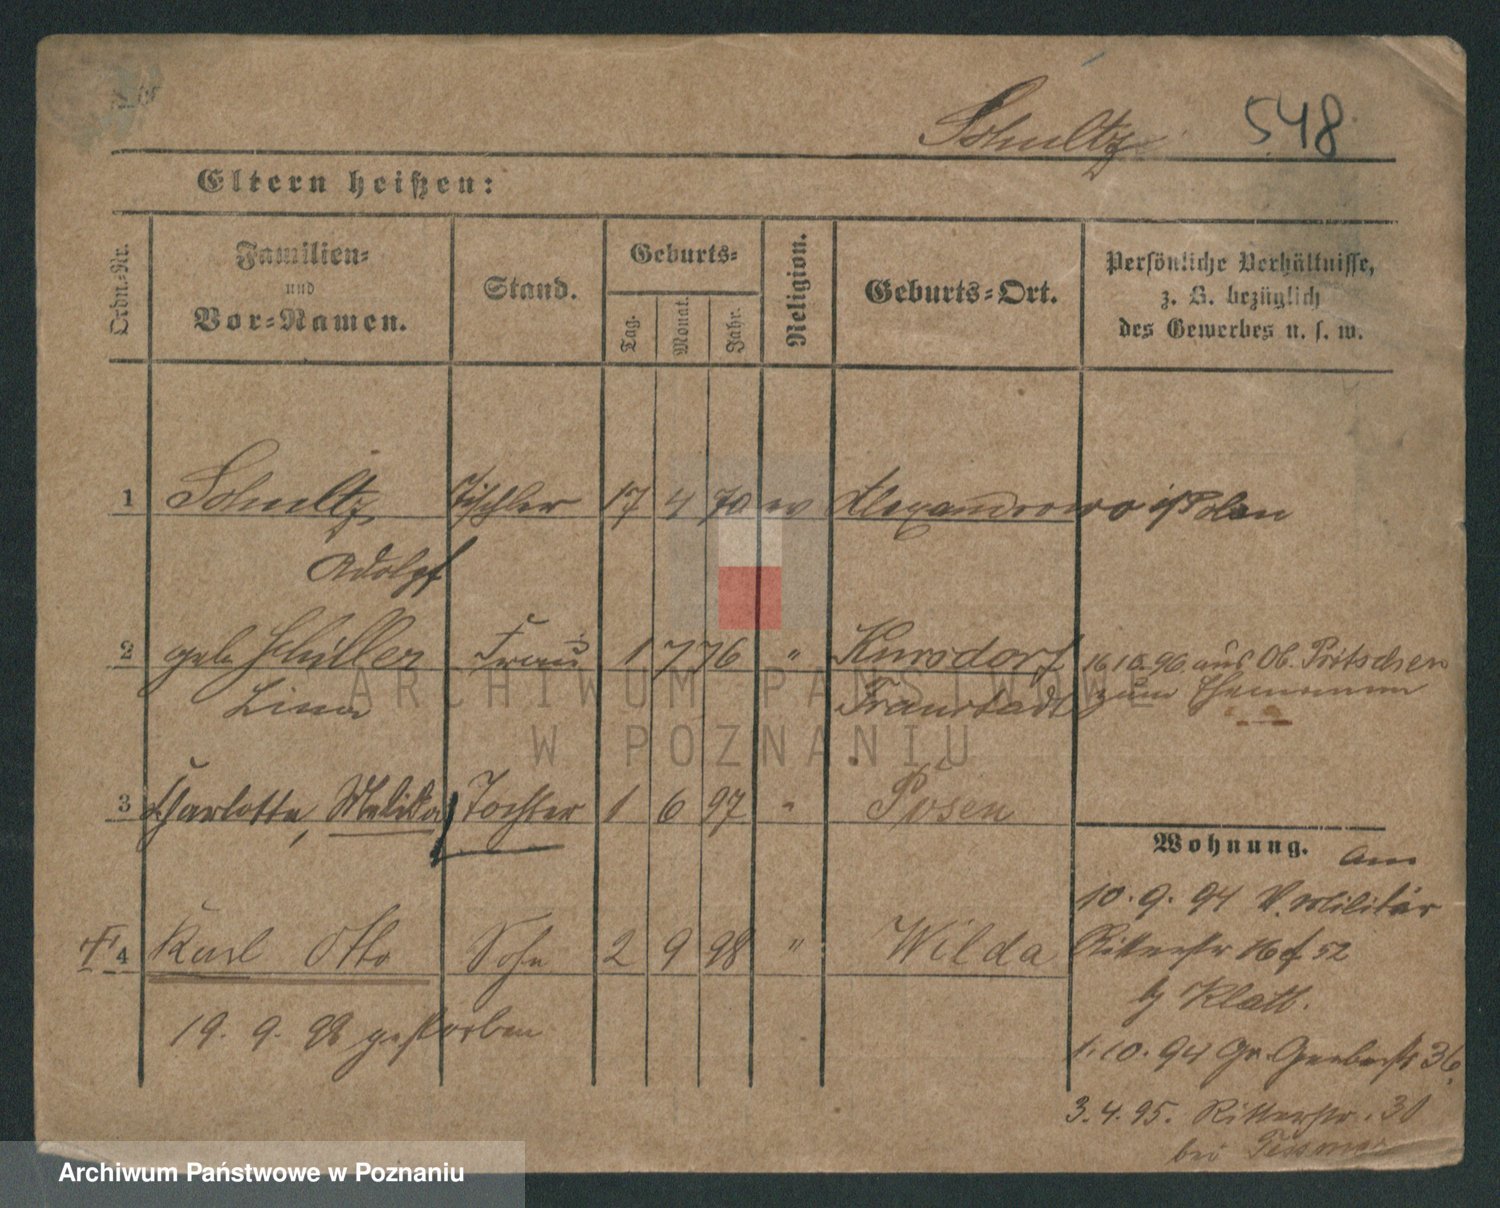 Schultz 548
Eltern heißen:
Ordn.-Nr.
Familien-
und
Vor-Namen.
Stand.
Geburts-
Tag.
Monat.
Jahr.
Religion.
Geburts-Ort.
Persönliche Verhältnisse,
z. B. bezüglich
des Gewerbes u. s. w.
1 Schultz Tischler 17 4 70 ev Alexandrowo i/Polen
Adolf
2 geb. Frau 1 7 76 " Kursdorf 16.10.96. aus Ob. Pritschen
Lina Fraustadt zum Ehemann
3 Charlotte, Melida Tochter 1 6 97 " Posen
Wohnung. am
10.9.94 V. Militär
4 Karl Otto Sohn 2 9 98 " Wilda Ritterstr 16 52
b/ Klatt.
19. 9. 98 gestorben
1.10.94 Gr. Gerberstr 36.
3.4.95. Ritterstr. 30
bei
ARCHIWUM PAŃSTWOWE
W POZNANIU
Archiwum Państwowe w Poznaniu